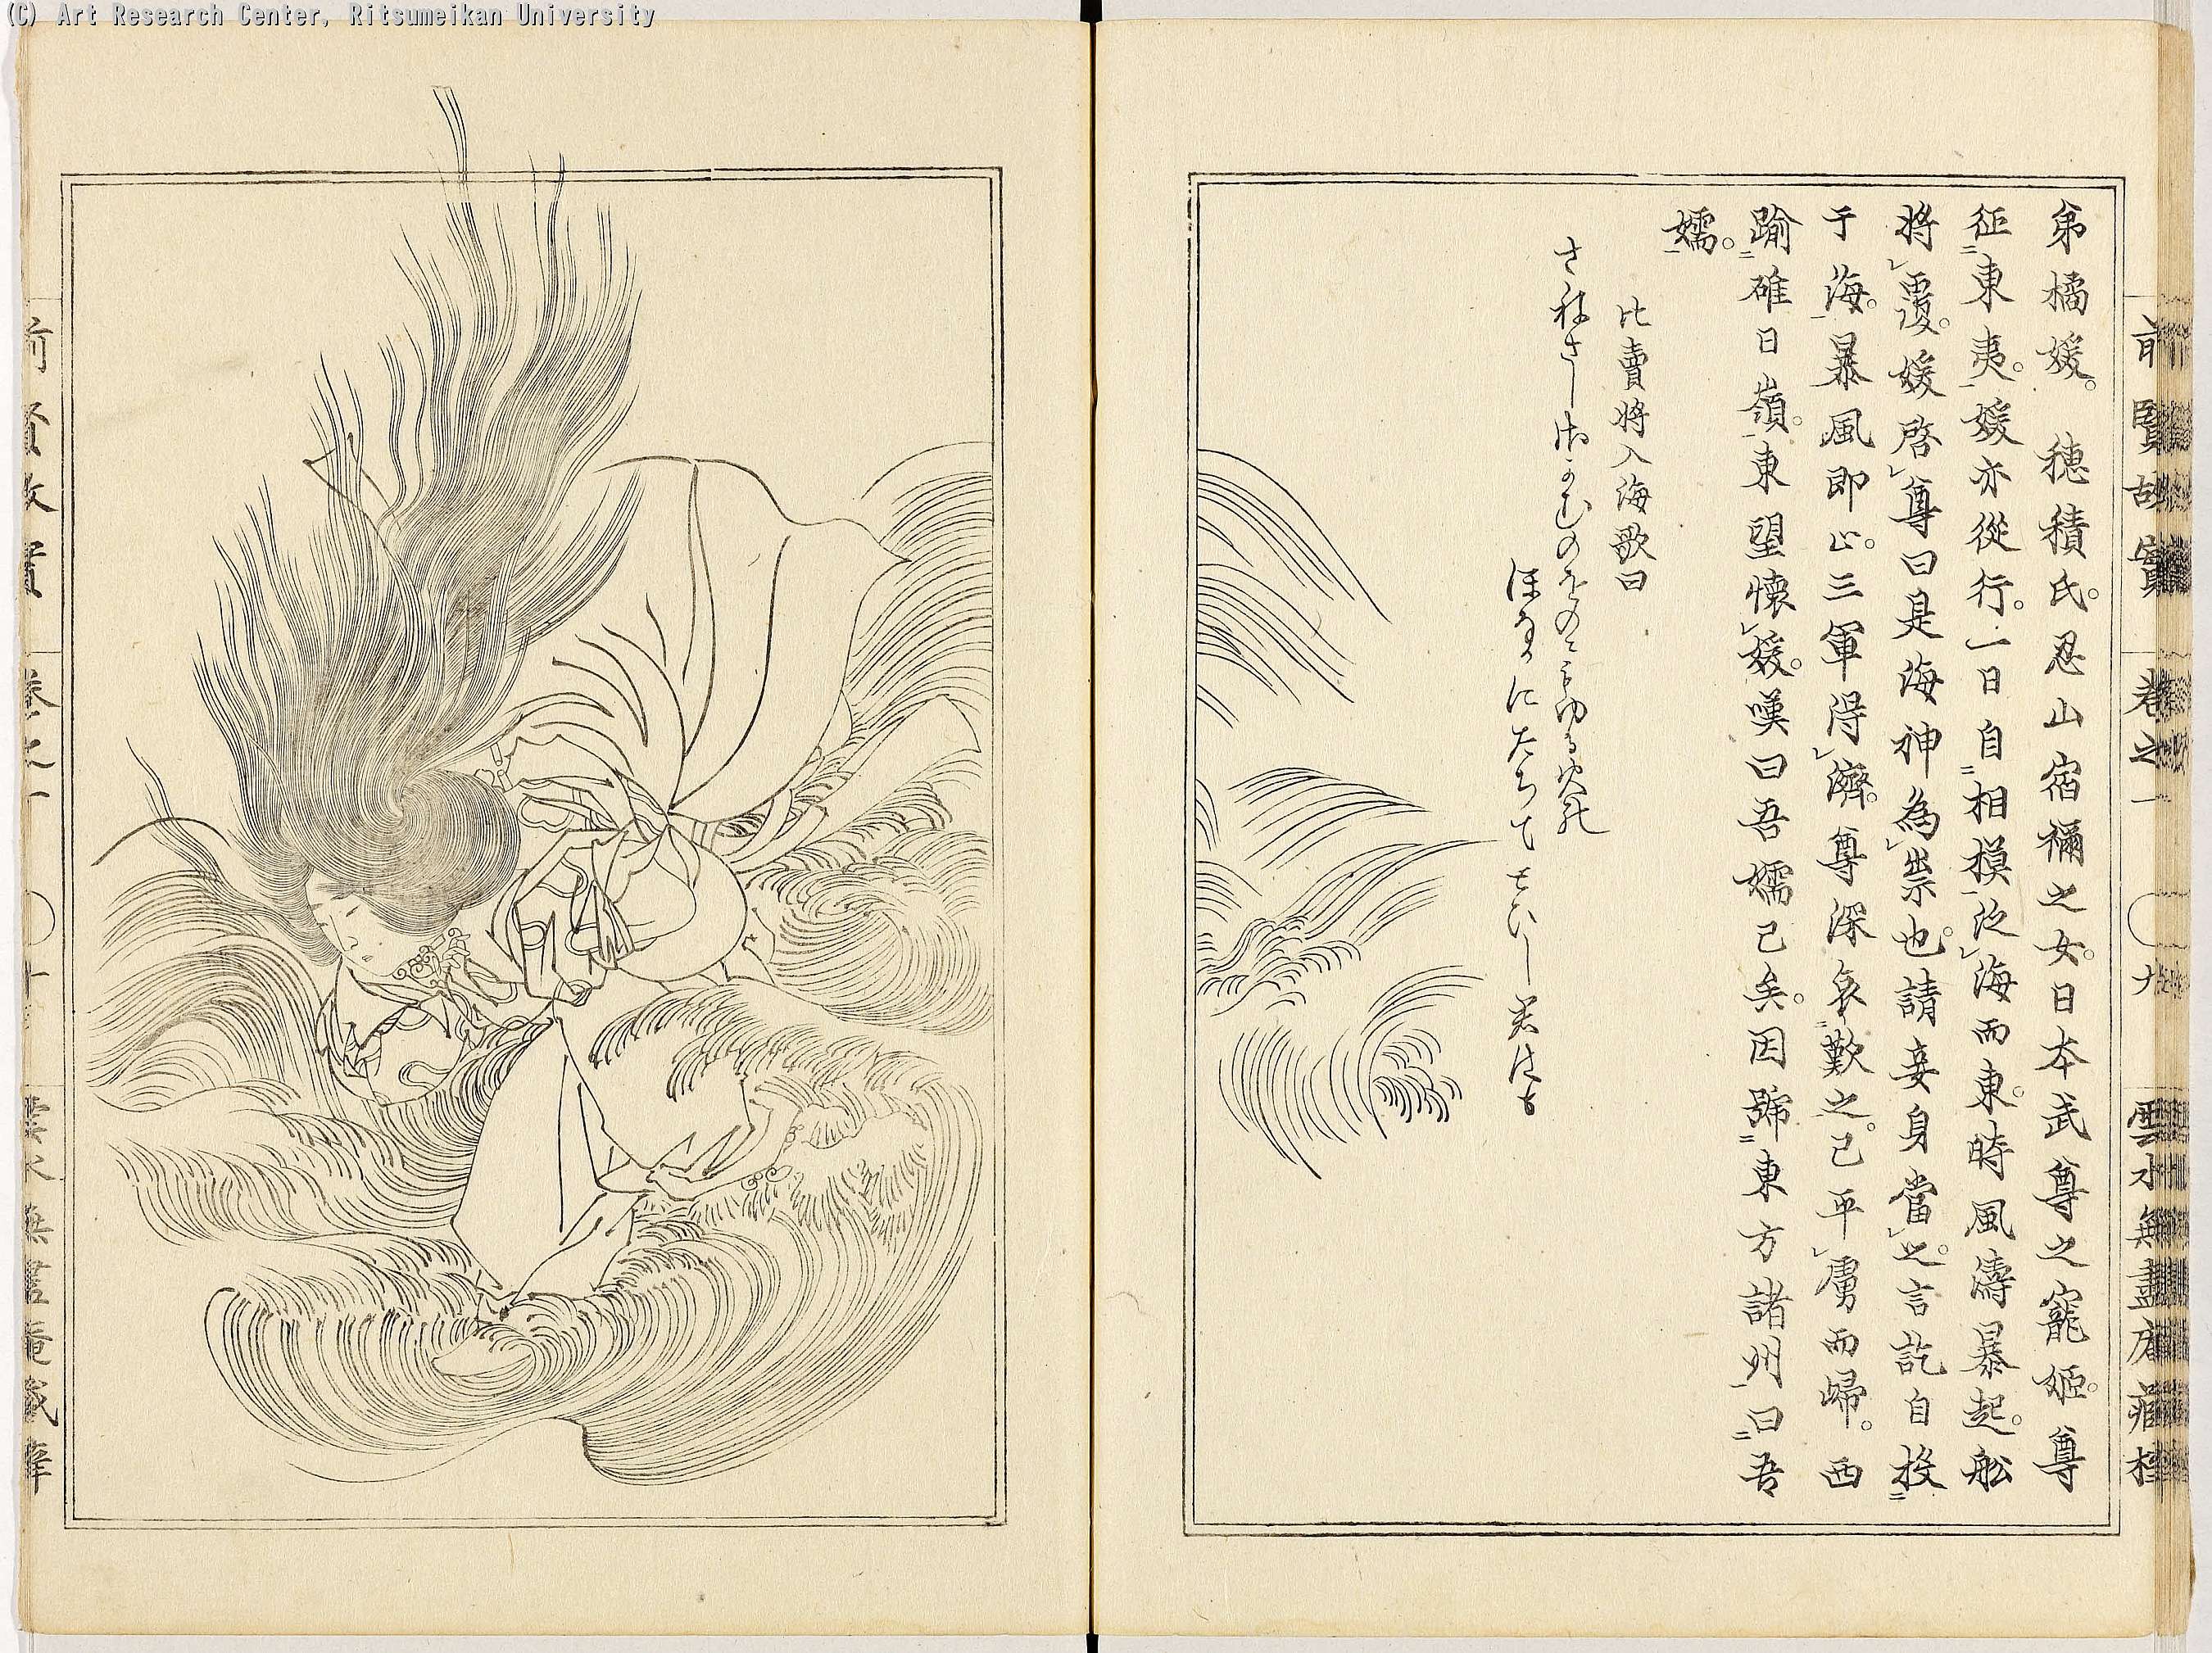 (C) Art Research Center, Ritsumeikan University
前賢故實 卷之一 ○九 雲水無盡庵藏梓
弟橘媛。 穂積氏。忍山宿禰之女。日本武尊之寵姬。尊
征東夷。媛亦從行。一日自相模泛海而東。時風濤暴起。舩
将覆。媛啓尊曰是海神為祟也。請妾身當之。言訖自投
于海。暴風即止。三軍得濟。尊深哀歎之。已平虜而歸。西
踰碓日嶺。東望懷媛。嘆曰吾孀已矣。因號東方諸州曰吾
孀。
比賣将入海歌曰
さねさし相かむのをのにもゆる火の
ほなかにたちてとひし君はも
前賢故實 卷之一 ○十 雲水無盡庵藏梓